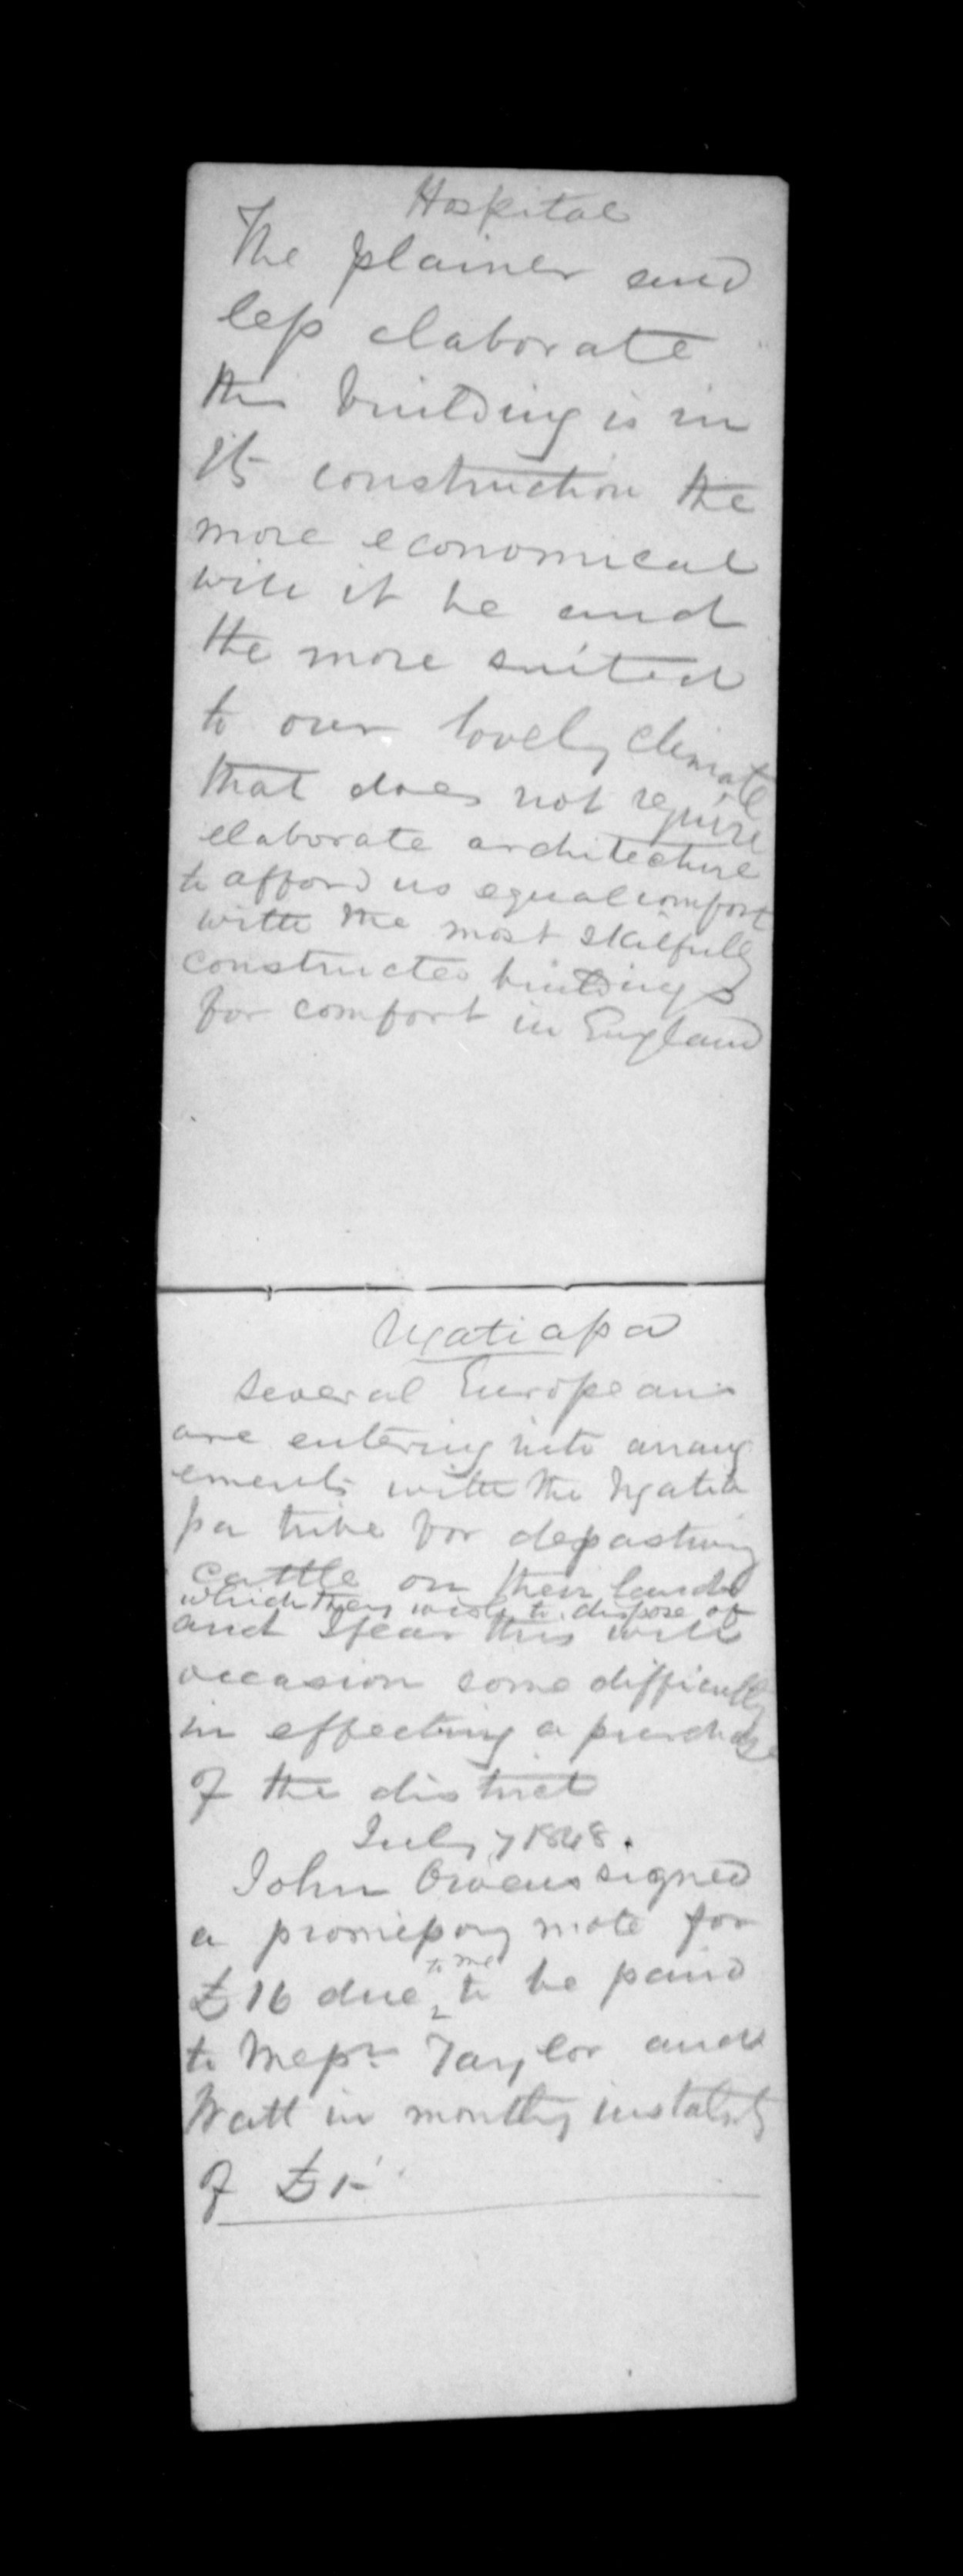 Hospital
The plainer and
less elaborate
this building is in
its construction the
more economical
will it be and
the more suited
to our lovely climate
that does not require
elaborate architecture
to afford us equal comfort
with the most skilfully
constructed buildings
for comfort in England
Ngatiapa
Several Europeans
are entering into arrang
ements with the Ngatia
pa tribe for depasturing
cattle on their lands
which they wish to dispose of
and I fear this will
occasion some difficulty
in effecting a purchase
of the district
July 7 1848.
John Owens signed
a promissory note for
to me
£16 due ‸ to be paid
to Messrs Taylor and
Watt in monthly instalmts
of £1-